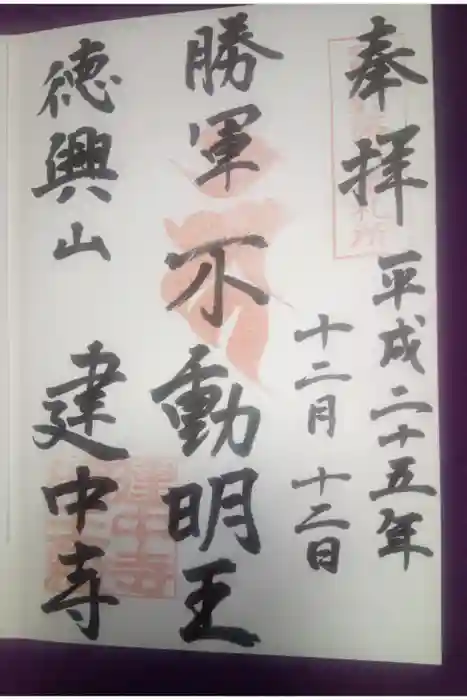 奉拝 平成二十五年
十二月十二日
勝軍不動明王
徳興山 建中寺
札所
建中寺